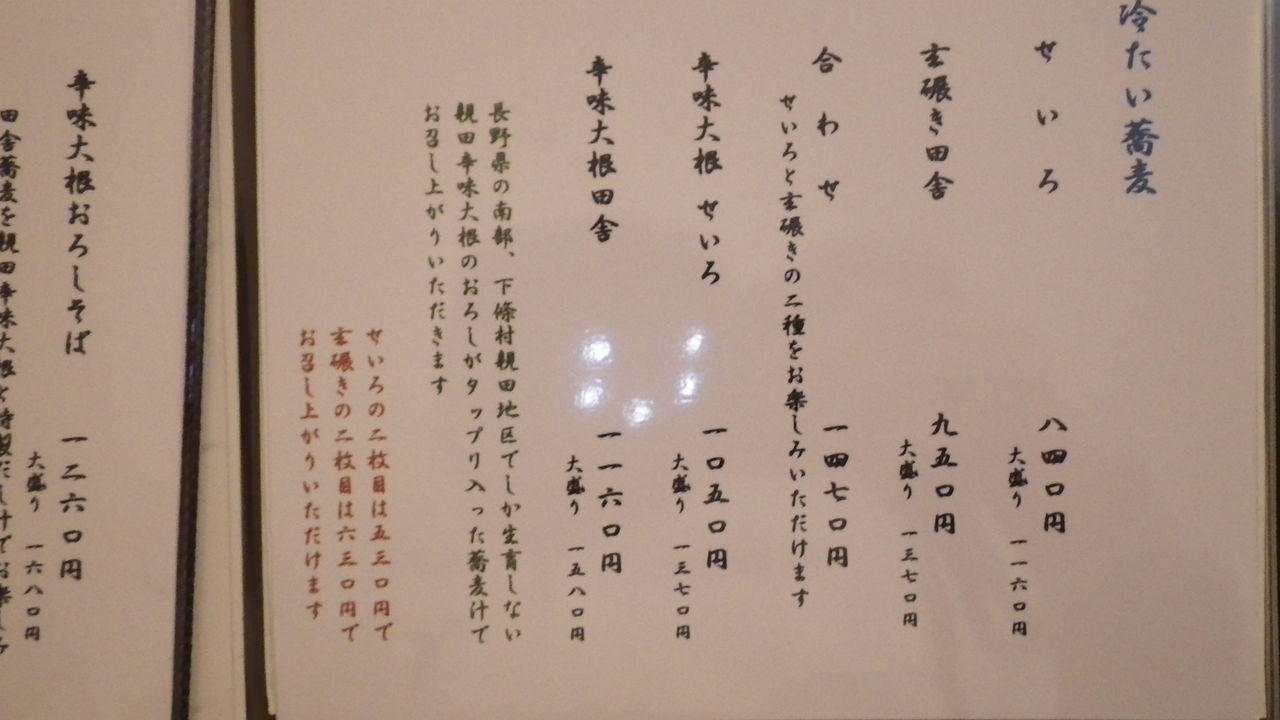 冷たい蕎麦
せいろ
八四〇円
大盛り 一一六〇円
玄碾き田舎
九五〇円
大盛り 一三七〇円
合わせ
一四七〇円
せいろと玄碾きの二種をお楽しみいただけます
辛味大根せいろ
一〇五〇円
大盛り 一三七〇円
辛味大根田舎
一一六〇円
大盛り 一五八〇円
長野県の南部、下條村親田地区でしか生育しない
親田辛味大根のおろしがタップリ入った蕎麦汁で
お召し上がりいただきます
せいろの二枚目は五三〇円で
玄碾きの二枚目は六三〇円で
お召し上がりいただけます
辛味大根おろしそば
一二六〇円
大盛り 一六八〇円
田舎蕎麦を親田辛味大根と特製だし汁でお楽しみ